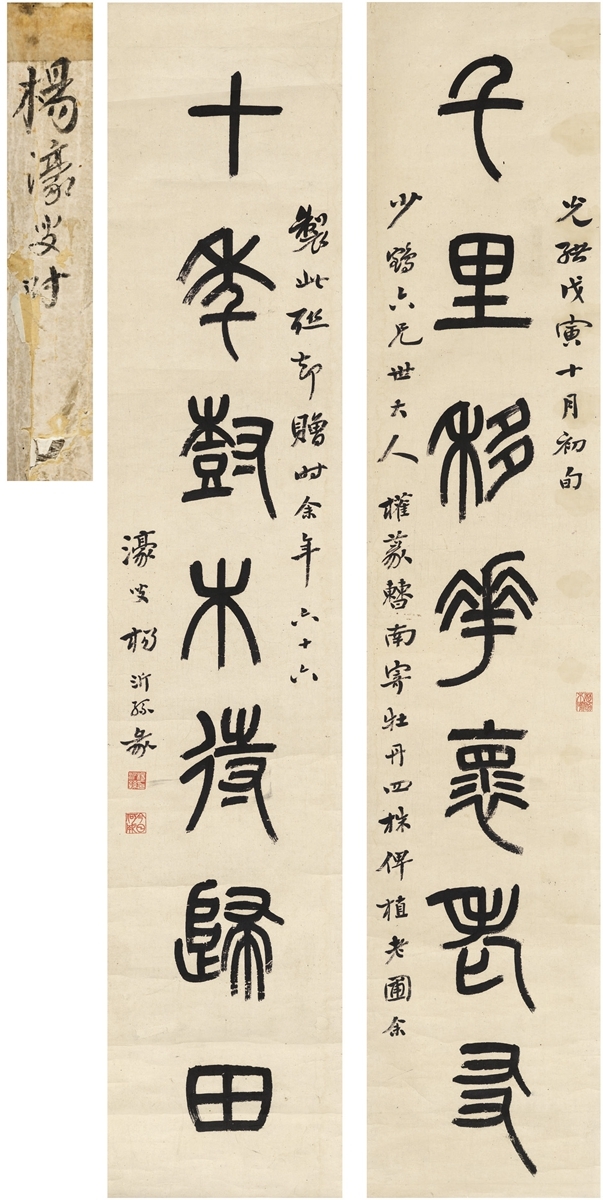 光緒戊寅十月初旬
千里移華褱老友
少鶴六兄世大人 權篆南寄牡丹四株俾植老圃余
製此聯却贈时余年六十六
十年樹木待歸田
濠叟楊沂孫篆
楊濠叟对